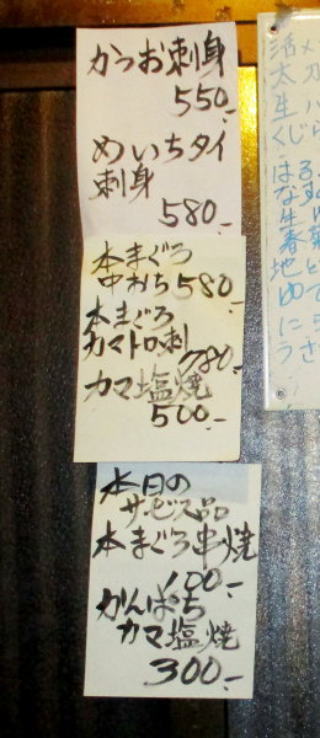 かつお刺身
550.-
めいちダイ
刺身
580.-
本まぐろ
中おち580.-
本まぐろ
カマトロ刺
780.-
カマ塩焼
500.-
本日の
サービス品
本まぐろ串焼
100.-
かんぱち
カマ塩焼
300.-